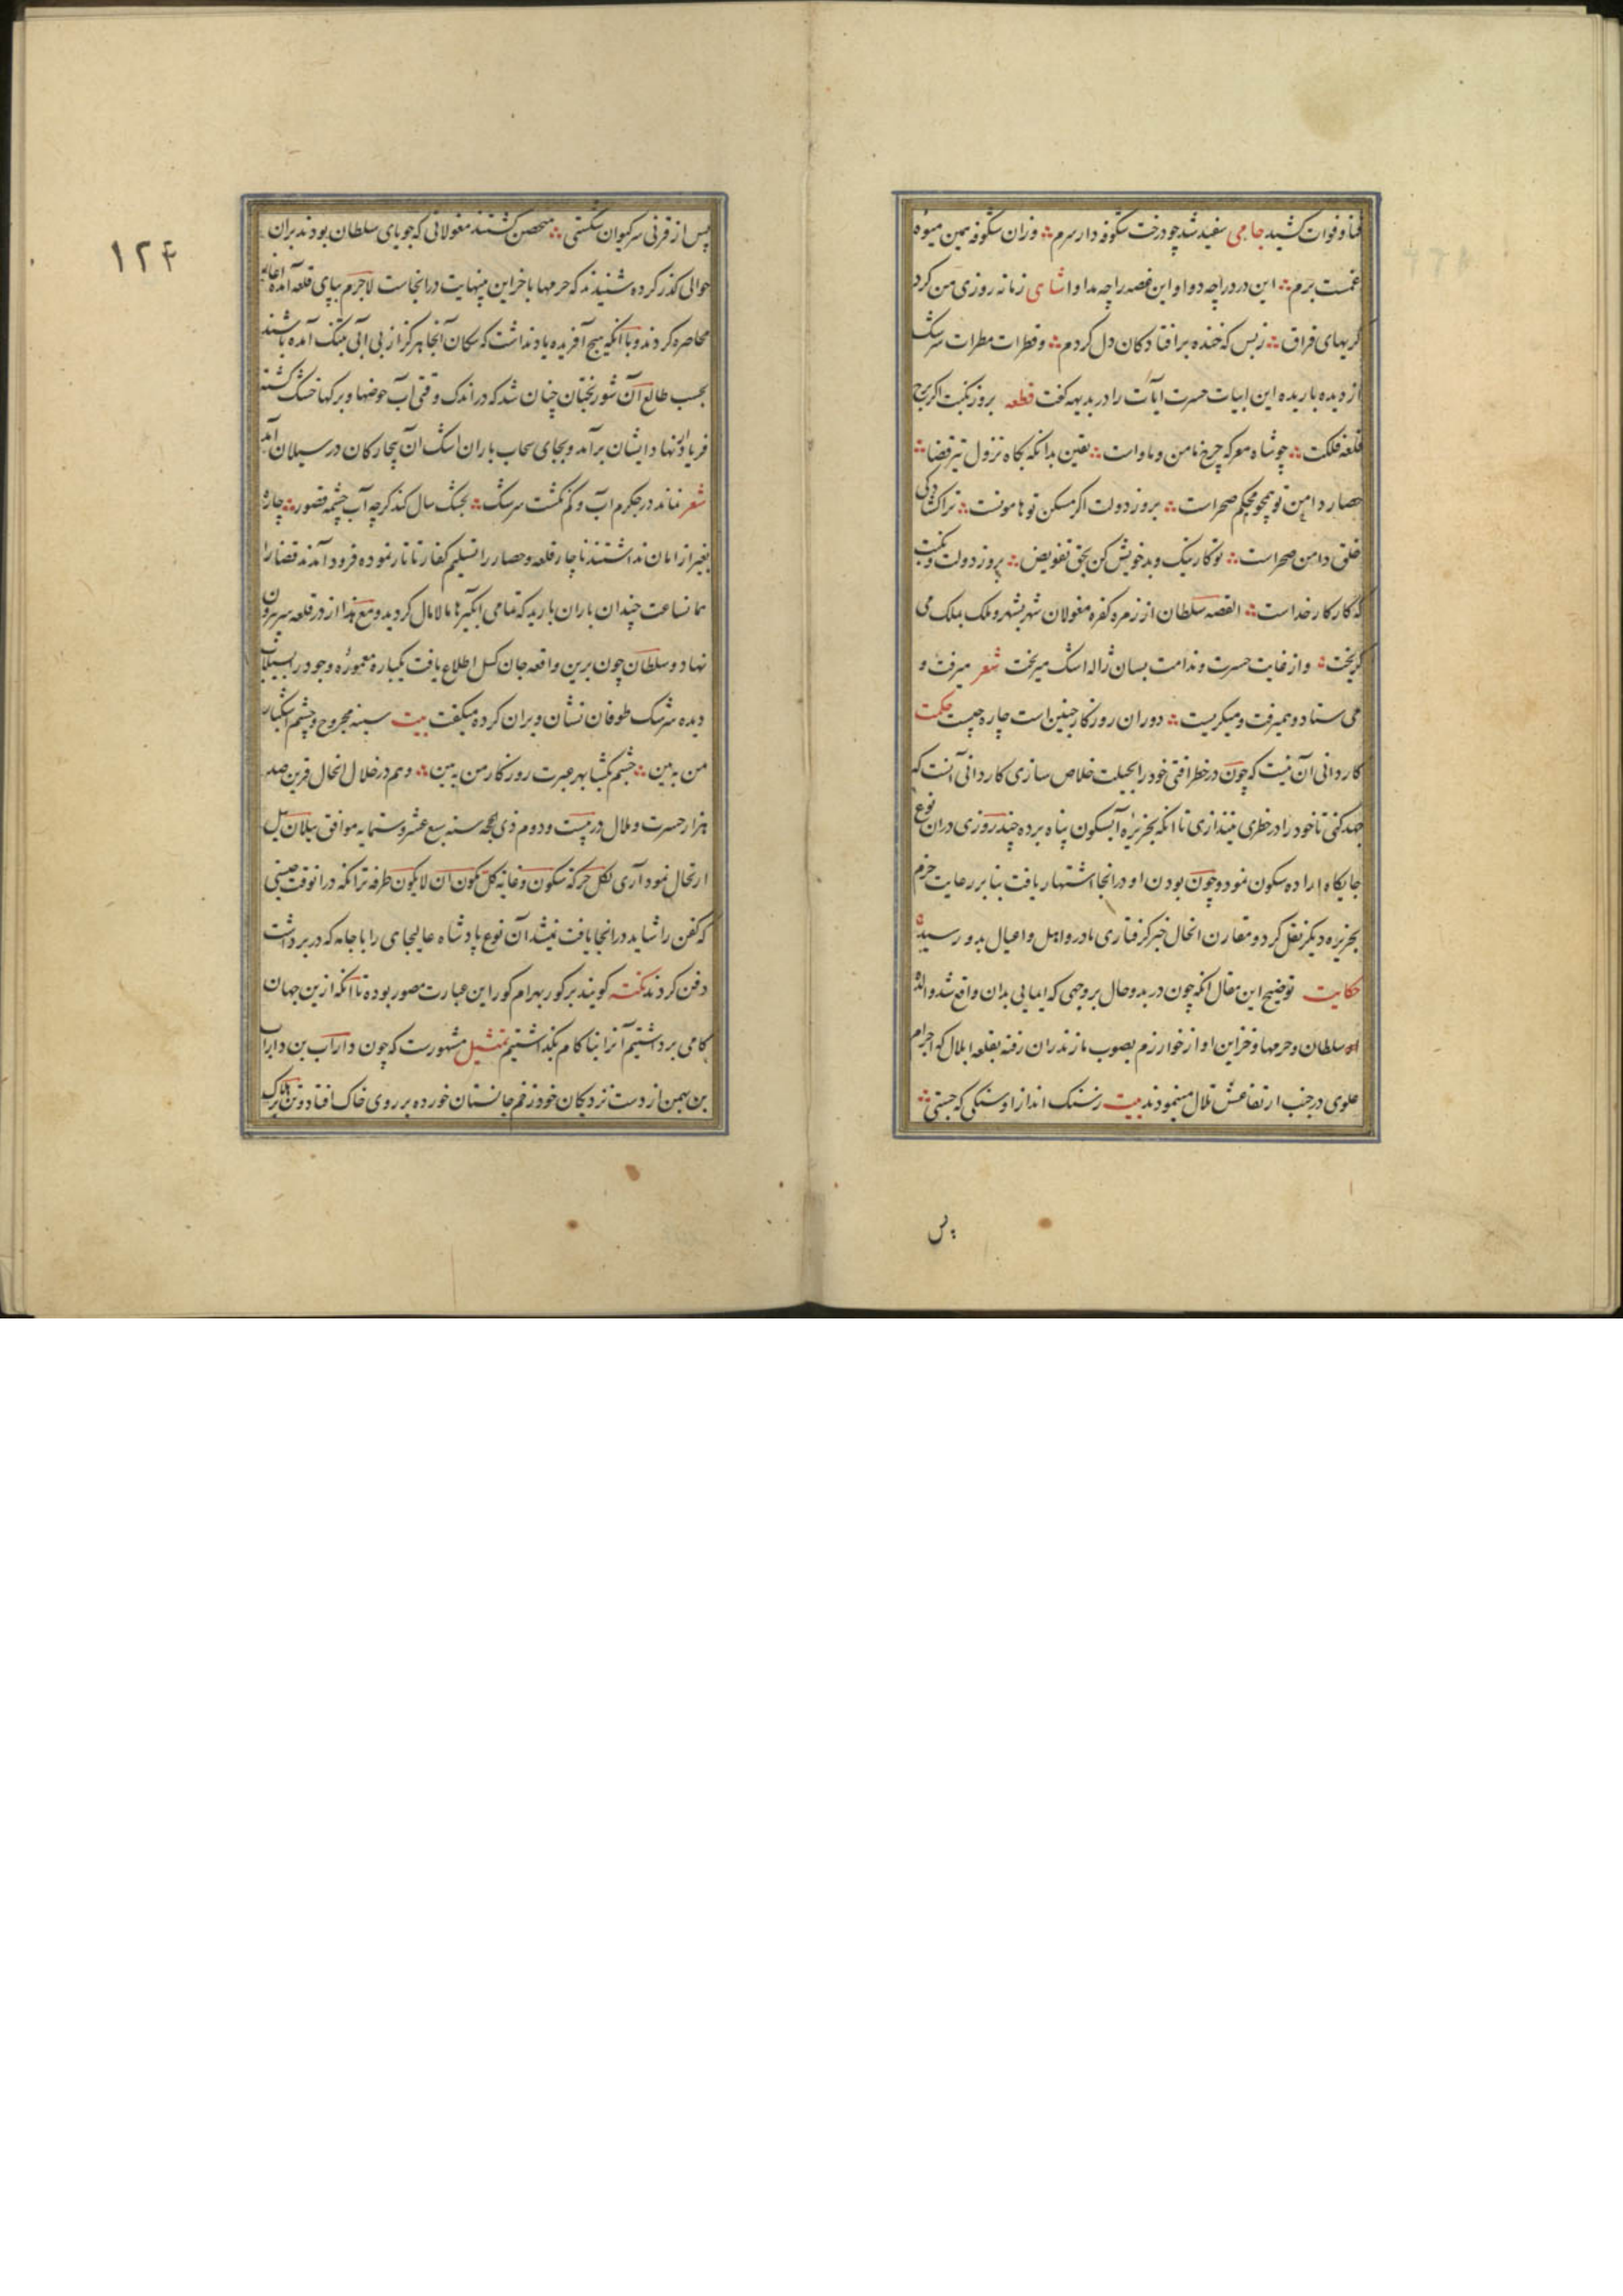 فنا و فوات کشید جامی سفید شد چو درخت شکوفه دار سرم وزان شکوفه همین میوه
غمست برم این درد را چه دوا و این غصه را چه مداوا شاهی زمانه روزی من کرد
گریهای فراق ز بس که خنده بر افتادگان دل کردم و قطرات مطرات سرشک
از دیده باریده این ابیات حسرت آیات را در بدیهه گفت قطعه بروز نکبت اگر برج
قلعه فلکت چو شاه معرکه چرخ مامن و ماواست یقین بدانکه بگاه نزول تیر قضا
حصار دامن تو همچو محکم صحراست بروز دولت اگر مسکن تو هامونست ترا گشادگی
خلق دامن صحراست تو کار نیک و بد خویش کن بحق تفویض بروز دولت و نکبت
که کار کار خداست القصه سلطان از زمره کفره مغولان شهر بشهر و ملک بملک می
گریخت و از غایت حسرت و ندامت بسان ژاله اشک میریخت شعر میرفت و
می ستاد و همیرفت و میگریست دوران روزگار چنین است چاره چیست حکمت
کاردانی آن نیست که چون در خطر افتی خود را بحیلت خلاص سازی کاردانی آنست که
جهد کنی تا خود را در خطری نیندازی تا آنکه بجزیره آبسکون پناه برده چند روزی دران نوع
جایگاه اراده سکون نمود و چون بودن او در انجا اشتهار یافت بنا بر رعایت حزم
بجزیره دیگر نقل کرد و مقارن انحال خبر گرفتاری مادر و اهل و اعیال بدو رسید
حکایت توضیح این مقال آنکه چون در بدو حال بروجهی که ایمایی بدان واقع شد والده
سلطان و حرمها و خزاین او از خوارزم بصوب مازندران رفته بقلعه ایلال که اجرام
علوی در جنب ارتفاعش تلال مینمودند بیت ز سنگ انداز او سنگی که جستی
پس
۱۲۴
پس از قرنی سر کیوان شکستی متحصن گشتند مغولانی که جویای سلطان بودند بران
حوالی گذر کرده شنیدند که حرمها با خزاین بینهایت در انجاست لاجرم بپای قلعه آمده
محاصره کردند و با آنکه هیچ آفریده یاد نداشت که سکان آنجا هرگز از بی آبی بتنگ آمده باشند
بحسب طالع آن شوربختان چنان شد که در اندک وقتی آب حوضها و برکها خشک گشته
فریاد از نهاد ایشان برآمد و بجای سحاب باران اشک آن بیچارگان در سیلان آمد
شعر نماند در جگرم آب و کم نگشت سرشک بخشک سال کند گرچه آب چشمه قصور چاره
بغیر از امان نداشتند ناچار قلعه و حصار را تسلیم کفار تاتار نموده فرود آمدند قضا را
همانساعت چندان باران بارید که تمامی آبگیرها مالامال گردید و مع هذا از در قلعه بیرون
نهاد و سلطان چون برین واقعه جان گسل اطلاع یافت یکباره معموره وجود را بسیلاب
دیده سرشک طوفان نشان ویران کرده میگفت بیت سینه مجروح و چشم اشکبار
من به بین چشم بگشا بهر عبرت روزگار من به بین و هم در خلال انحال قرین صد
هزار حسرت و ملال در بیست و دوم ذی حجه سنه سبع عشر و ستمایه موافق ییلان ییل
ارتحال نمود آری لکل حرکة سکون و غایة کل یکون ان لا یکون طرفه تر آنکه در انوقت جنسی
که کفن را شاید در انجا یافت نمیشد آن نوع پادشاه عالیجاهی را با جامه که در بر داشت
دفن کردند نکته گویند بر گور بهرام گور این عبارت مصور بوده تا آنکه ازین جهان
کامی برداشتیم آنرا بناکام بگذاشتیم تمثیل مشهورست که چون داراب بن داراب
بن بهمن از دست نزدیکان خود زخم جانستان خورده بر روی خاک افتاد و تن